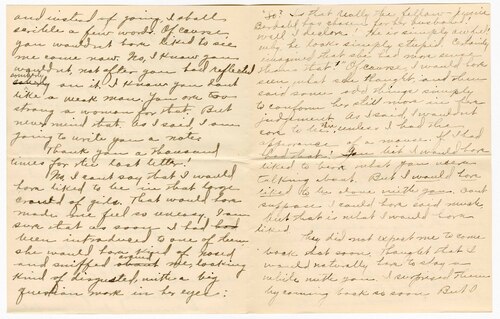 and instead of going, I shall
scribble a few words. Of course,
you wouldn't have liked to see
me come now. No, I know you
wouldn't, not after you had reflected
simply on it. I know you don't
like a weak man you are too
strong a woman for that. But
never mind that. As I said I am
going to write you a note.
Thank you a thousand
times for the last letter!
No, I can't say that I would
have liked to be in that large
crowd of girls. That would have
made me feel so uneasy. I am
sure that as soon as I had
been introduced to one of them
she would have sized me
and sniffed around me, looking
kind of disgusted, with a big
question mark in her eyes:
"So? — is that really the fellow
has chosen for her husband!
Well I declare. He is simply awful
why he looks simply stupid. Certainly
imagined that she had more sense
than that." Of course I would have
seen what she thought, and then
said some odd things simply
to conform her still more in her
judgement. As I said, I wouldn't
care to be unless I had the
appearance of a man. If I had
had that! I would have
liked to hear what you were
talking about. But I would have
liked to be alone with you. Don't
suppose I could have said much
but that is what I would have
liked.
They did not expect me to come
back that soon. Thought that I
would naturally have to stay a
while with you. I surprised them
by coming back so soon. But I